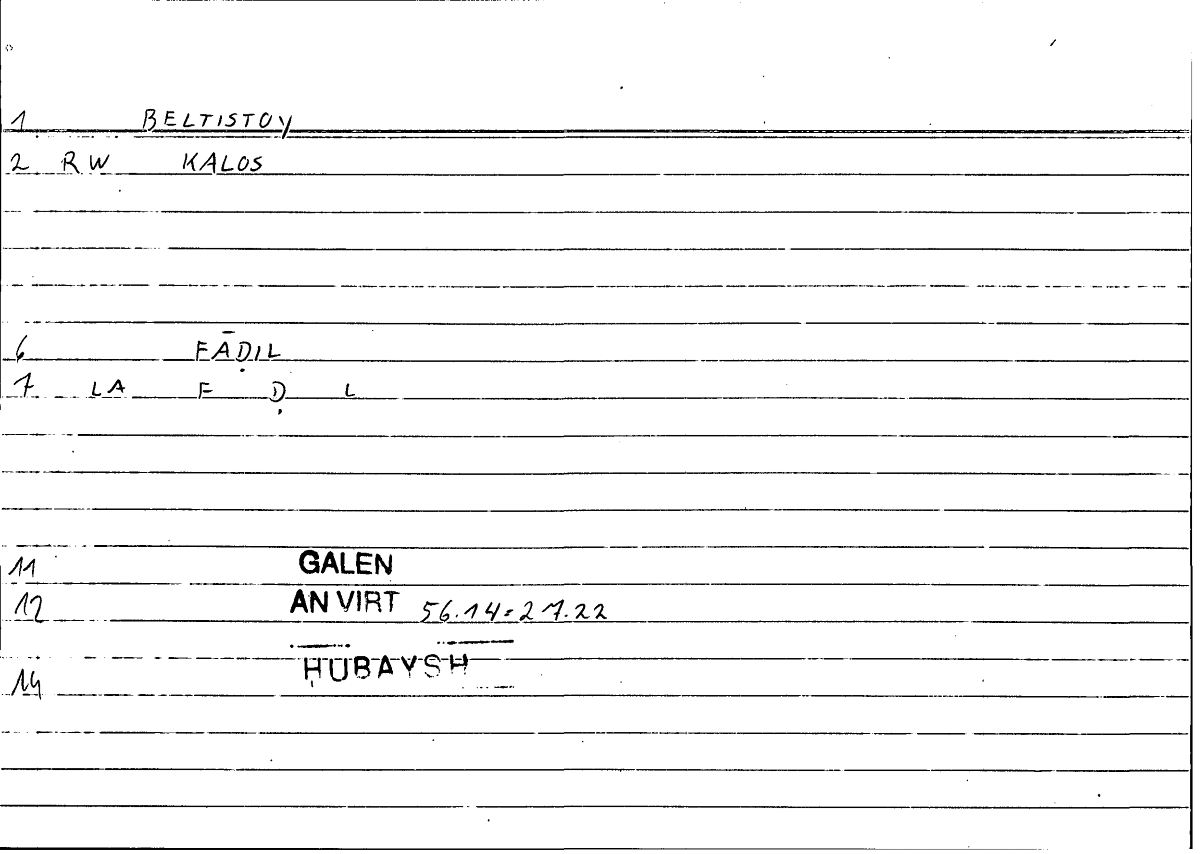 1 BELTISTOY
2 RW KALOS
6 FĀḌIL
7 LA F Ḍ L
11 GALEN
12 AN VIRT 56.14=27.22
14 ḤUBAYSH